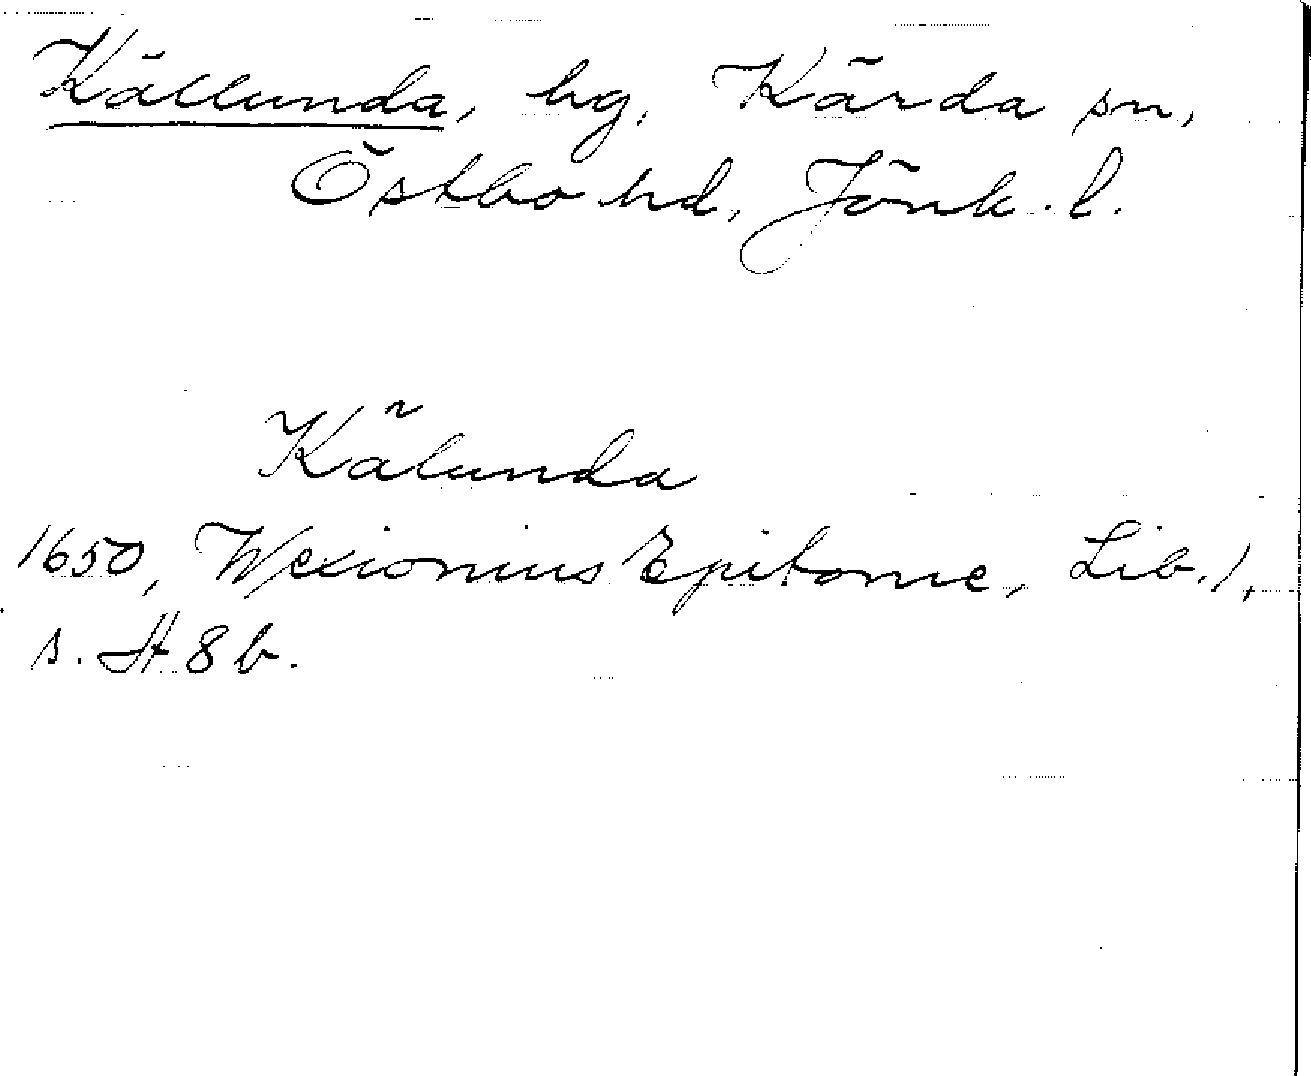 Källunda, by, Kärda sn,
Östbo hd, Jönk. l.
Kälunda
1650, Wexionius Epitome, Lib. 1,
s. H 8 b.